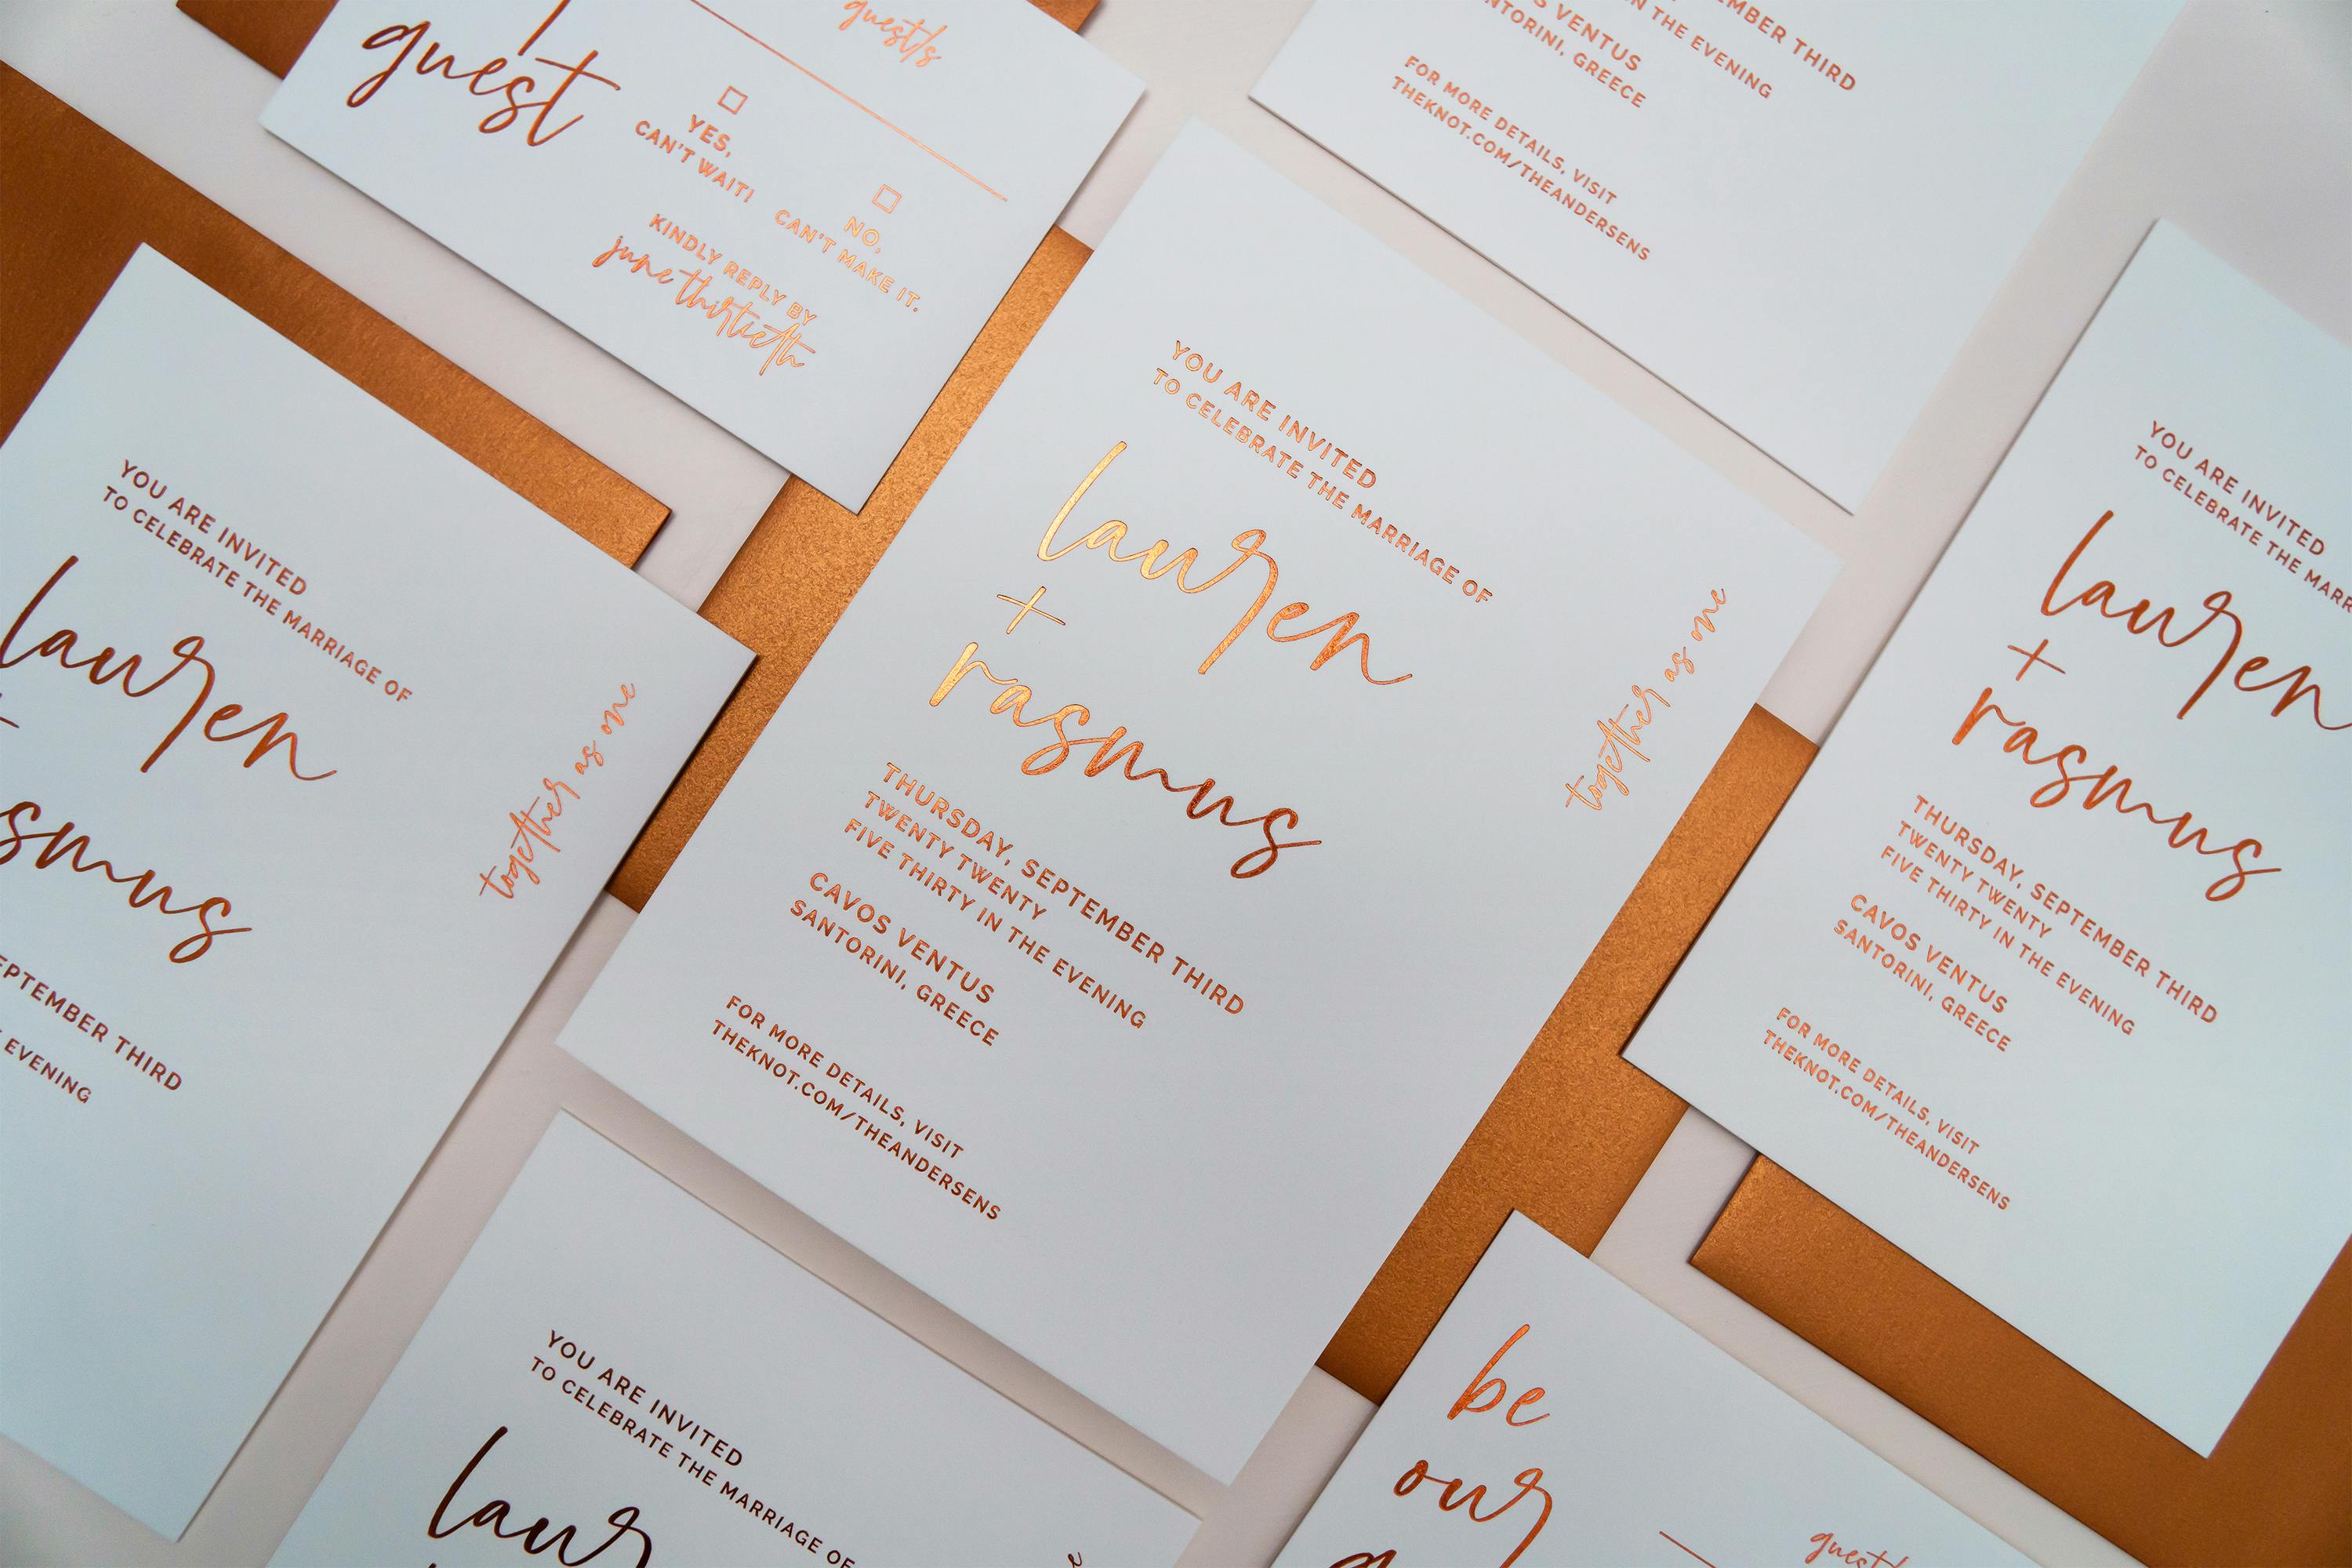 guest
guest/s
YES,
CAN'T WAIT!
NO,
CAN'T MAKE IT.
KINDLY REPLY BY
june thirtieth
SEPTEMBER THIRD
IN THE EVENING
CAVOS VENTUS
SANTORINI, GREECE
FOR MORE DETAILS, VISIT
THEKNOT.COM/THEANDERSENS
YOU ARE INVITED
TO CELEBRATE THE MARRIAGE OF
lauren
+
smus
together as one
SEPTEMBER THIRD
EVENING
YOU ARE INVITED
TO CELEBRATE THE MARRIAGE OF
lauren
+
rasmus
together as one
THURSDAY, SEPTEMBER THIRD
TWENTY TWENTY
FIVE THIRTY IN THE EVENING
CAVOS VENTUS
SANTORINI, GREECE
FOR MORE DETAILS, VISIT
THEKNOT.COM/THEANDERSENS
YOU ARE INVITED
TO CELEBRATE THE MARR
lauren
+
rasmus
THURSDAY, SEPTEMBER THIRD
TWENTY TWENTY
FIVE THIRTY IN THE EVENING
CAVOS VENTUS
SANTORINI, GREECE
FOR MORE DETAILS, VISIT
THEKNOT.COM/THEANDERSENS
YOU ARE INVITED
TO CELEBRATE THE MARRIAGE OF
laur
be
our
guest/